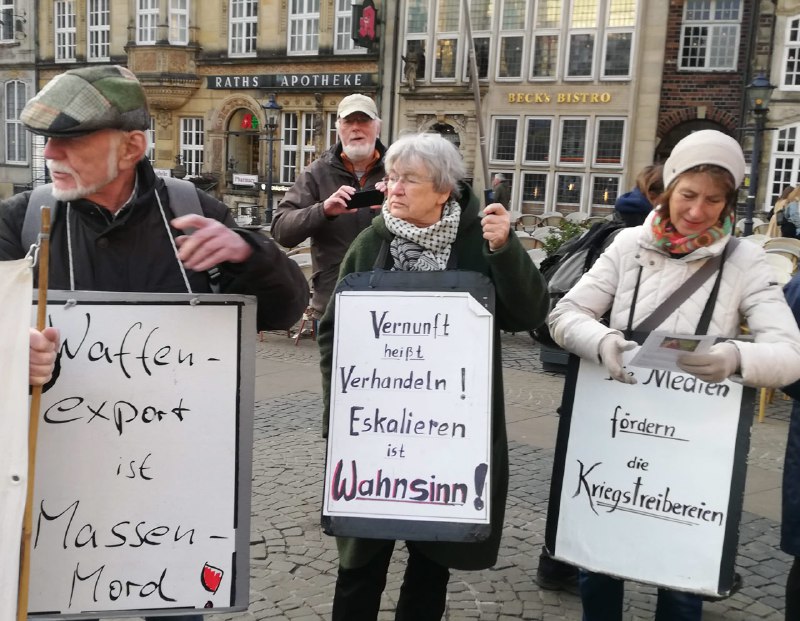 RATHS APOTHEKE
BECK'S BISTRO
Waffen-
export
ist
Massen-
Mord
Vernunft
heißt
Verhandeln!
Eskalieren
ist
Wahnsinn!
Die Medien
fördern
die
Kriegstreibereien